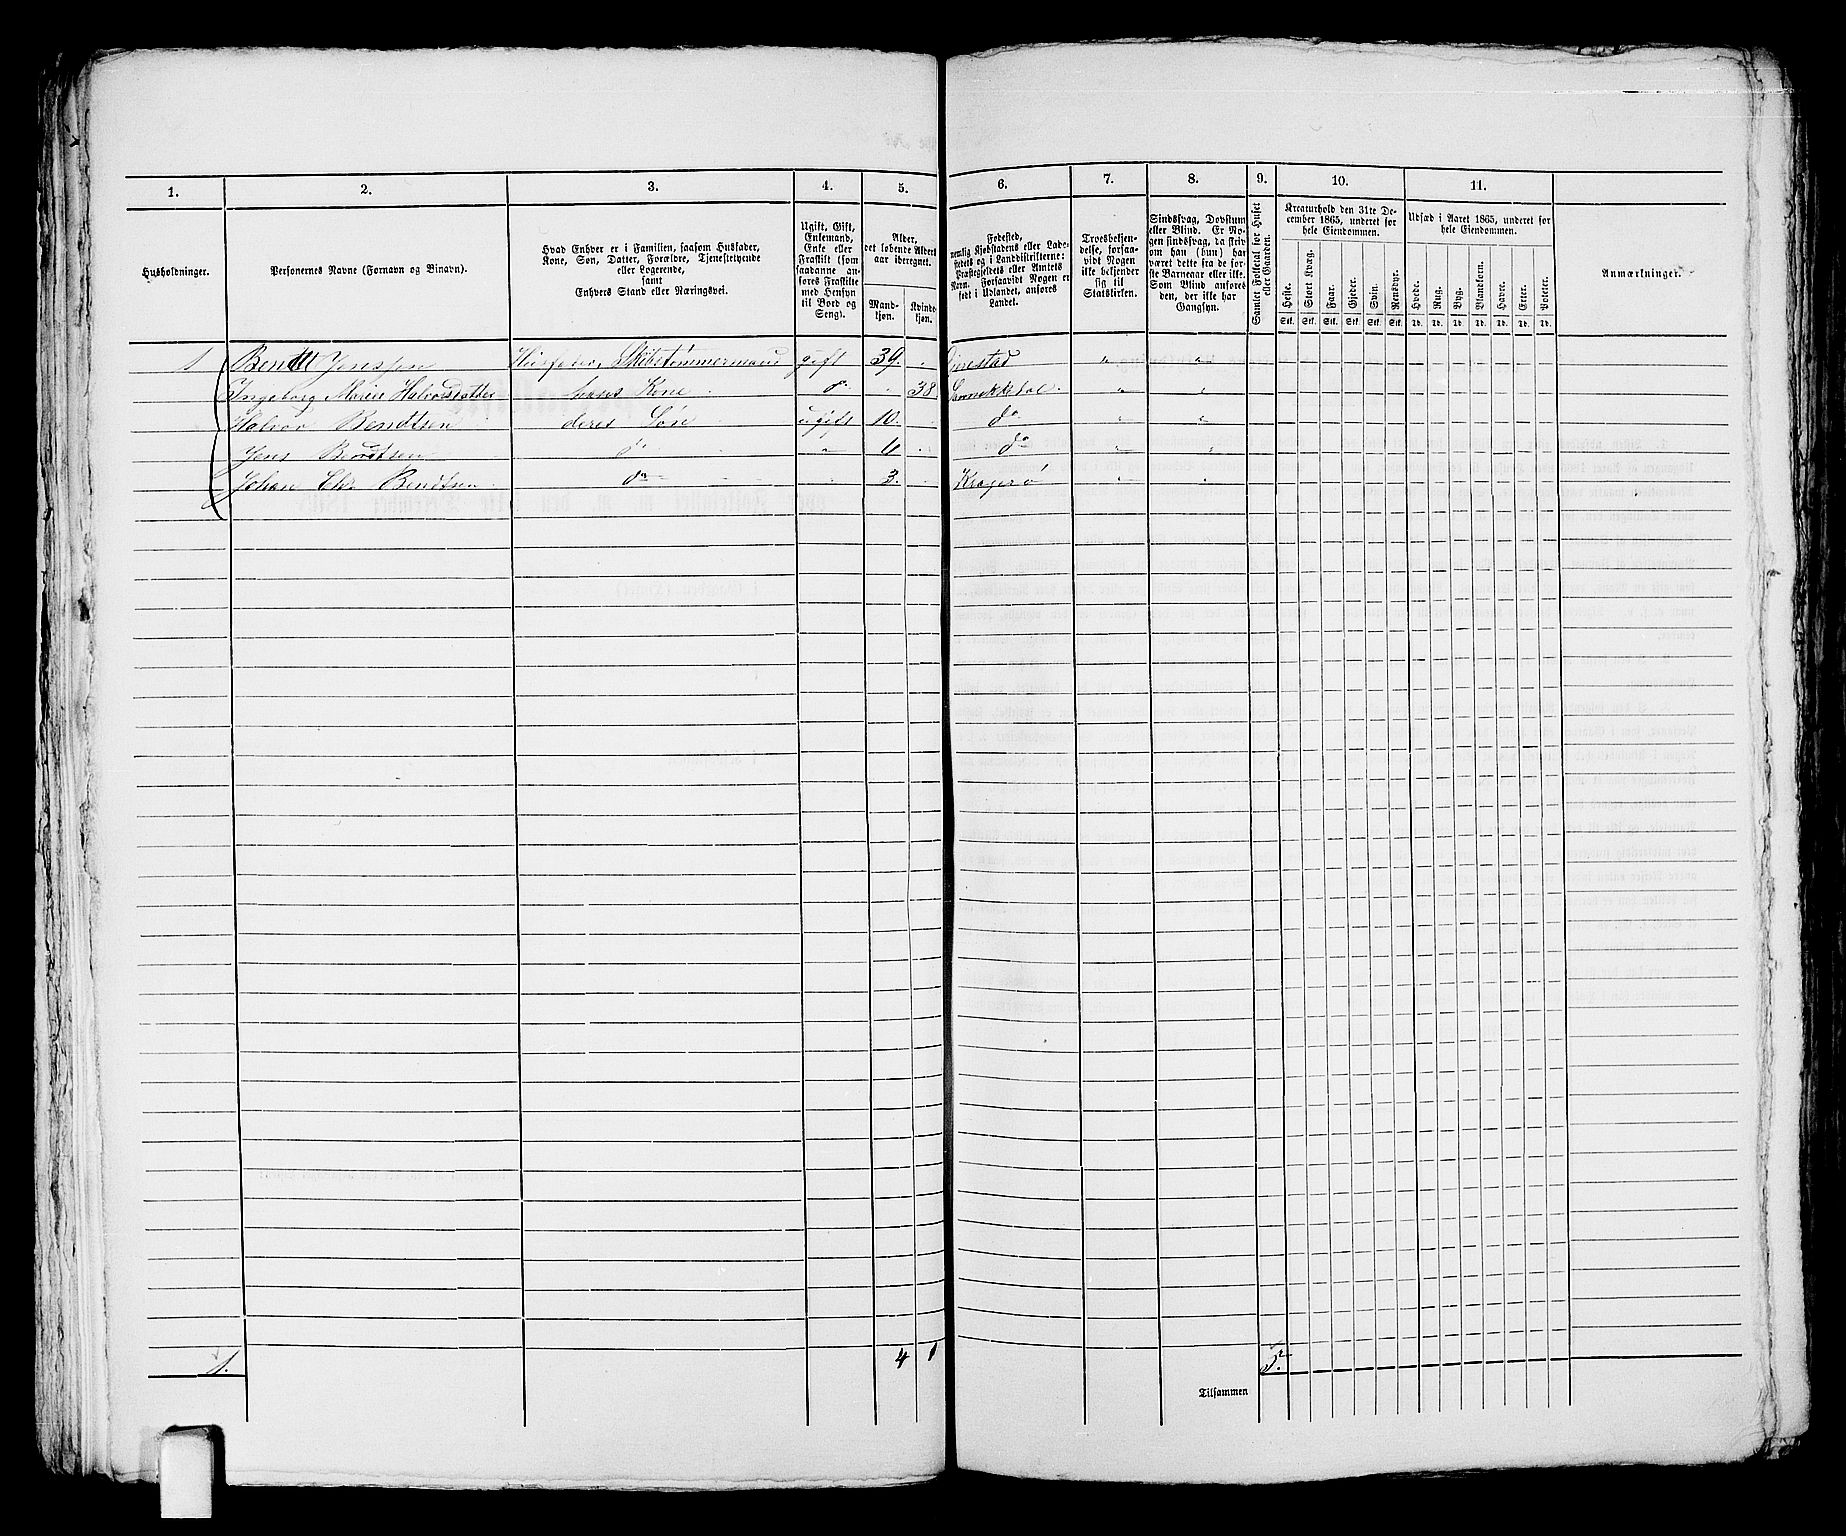 1. 2. 3. 4. 5. 6. 7. 8. 9. 10. 11.
Husholdninger.
Personernes Navne (Fornavn og Binavn).
Hvad Enhver er i Familien, saasom Husfader,
Kone, Søn, Datter, Forældre, Tjenestetyende
eller Logerende,
samt
Enhvers Stand eller Næringsvei.
Ugift, Gift,
Enkemand,
Enke eller
Fraskilt (som
saadanne an-
føres Fraskilte
med Hensyn
til Bord og
Seng).
Alder,
det løbende Alders-
aar iberegnet.
Mand-
kjøn.
Kvinde-
kjøn.
Fødested,
nemlig Kjøbstadens eller Lade-
stedets og i Landdistrikterne:
Præstegjeldets eller Amtets
Navn. Forsaavidt Nogen er
født i Udlandet, anføres
Landet.
Troesbekjen-
delse, forsaa-
vidt Nogen
ikke bekjender
sig til
Statskirken.
Sindssvag, Døvstum
eller Blind. Er No-
gen sindssvag, da skriv
om han (hun) har
været dette fra de før-
ste Barneaar eller ikke.
Som Blind anføres
den, der ikke har
Gangsyn.
Samlet Folketal for Huset
eller Gaarden.
Kreaturhold den 31te De-
cember 1865, underet for
hele Eiendommen.
Heste. Stort Kvæg. Faar. Gjeder. Svin. Rensdyr.
Stk. Stk. Stk. Stk. Stk. Stk.
Udsæd i Aaret 1865, underet for
hele Eiendommen.
Hvede. Rug. Byg. Blandkorn. Havre. Erter. Poteter.
Td. Td. Td. Td. Td. Td. Td.
Anmærkninger.
1 Bendt Jenssen Husfader, Skibstømmermand gift 39. " Gjerestad " "
Ingeborg Marie Halvorsdatter hans Kone do " 38 Sannikedal " "
Halvor Bendtsen deres Søn ugift 10. do " "
Jens Bendtsen do " 6 do " "
Johan Bendtsen do " 3. Kragerø " "
1. 4 1 5.
Tilsammen